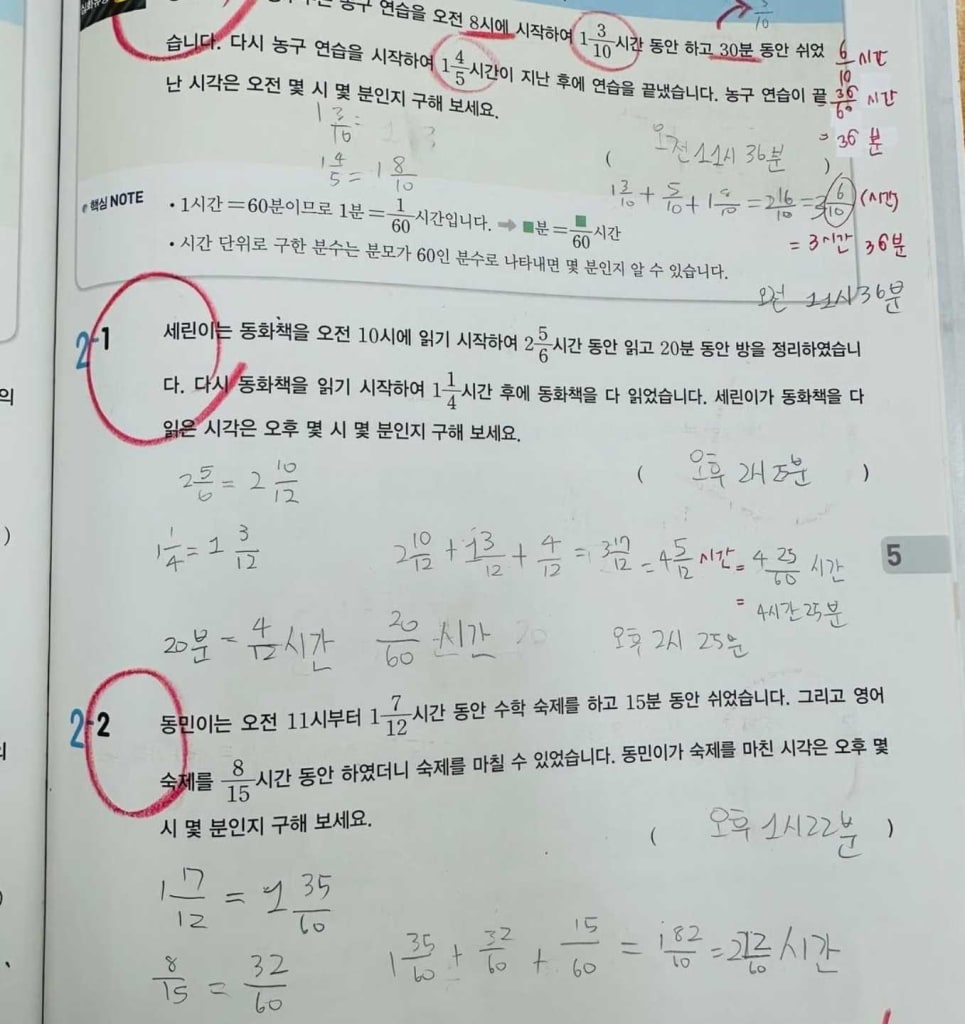 농구 연습을 오전 8시에 시작하여 1 3/10시간 동안 하고 30분 동안 쉬었
습니다. 다시 농구 연습을 시작하여 1 4/5시간이 지난 후에 연습을 끝냈습니다. 농구 연습이 끝
난 시각은 오전 몇 시 몇 분인지 구해 보세요.
3/10
6/10 시간
36/60 시간
= 36 분
1 3/10 =
1 4/5 = 1 8/10
( 오전 11시 36분 )
1 3/10 + 5/10 + 1 8/10 = 2 16/10 = 3 6/10 (시간)
= 3시간 36분
오전 11시 36분
핵심 NOTE
• 1시간=60분이므로 1분=1/60시간입니다. ➡ ■분=■/60시간
• 시간 단위로 구한 분수는 분모가 60인 분수로 나타내면 몇 분인지 알 수 있습니다.
의
2-1 세린이는 동화책을 오전 10시에 읽기 시작하여 2 5/6시간 동안 읽고 20분 동안 방을 정리하였습니
다. 다시 동화책을 읽기 시작하여 1 1/4시간 후에 동화책을 다 읽었습니다. 세린이가 동화책을 다
읽은 시각은 오후 몇 시 몇 분인지 구해 보세요.
( 오후 2시 25분 )
2 5/6 = 2 10/12
1 1/4 = 1 3/12
2 10/12 + 1 3/12 + 4/12 = 3 17/12 = 4 5/12 시간 = 4 25/60 시간
= 4시간 25분
20분 = 4/12 시간 20/60 시간
오후 2시 25분
5
2-2 동민이는 오전 11시부터 1 7/12시간 동안 수학 숙제를 하고 15분 동안 쉬었습니다. 그리고 영어
숙제를 8/15시간 동안 하였더니 숙제를 마칠 수 있었습니다. 동민이가 숙제를 마친 시각은 오후 몇
시 몇 분인지 구해 보세요.
( 오후 1시 22분 )
1 7/12 = 1 35/60
8/15 = 32/60
1 35/60 + 32/60 + 15/60 = 1 82/60 = 2 22/60 시간